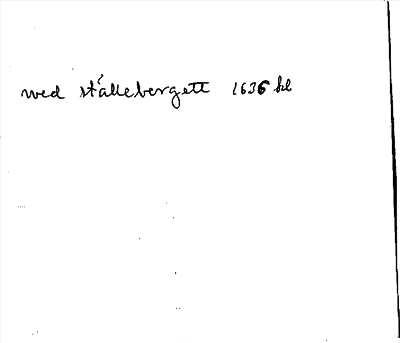 wed stållebergett 1636 hl